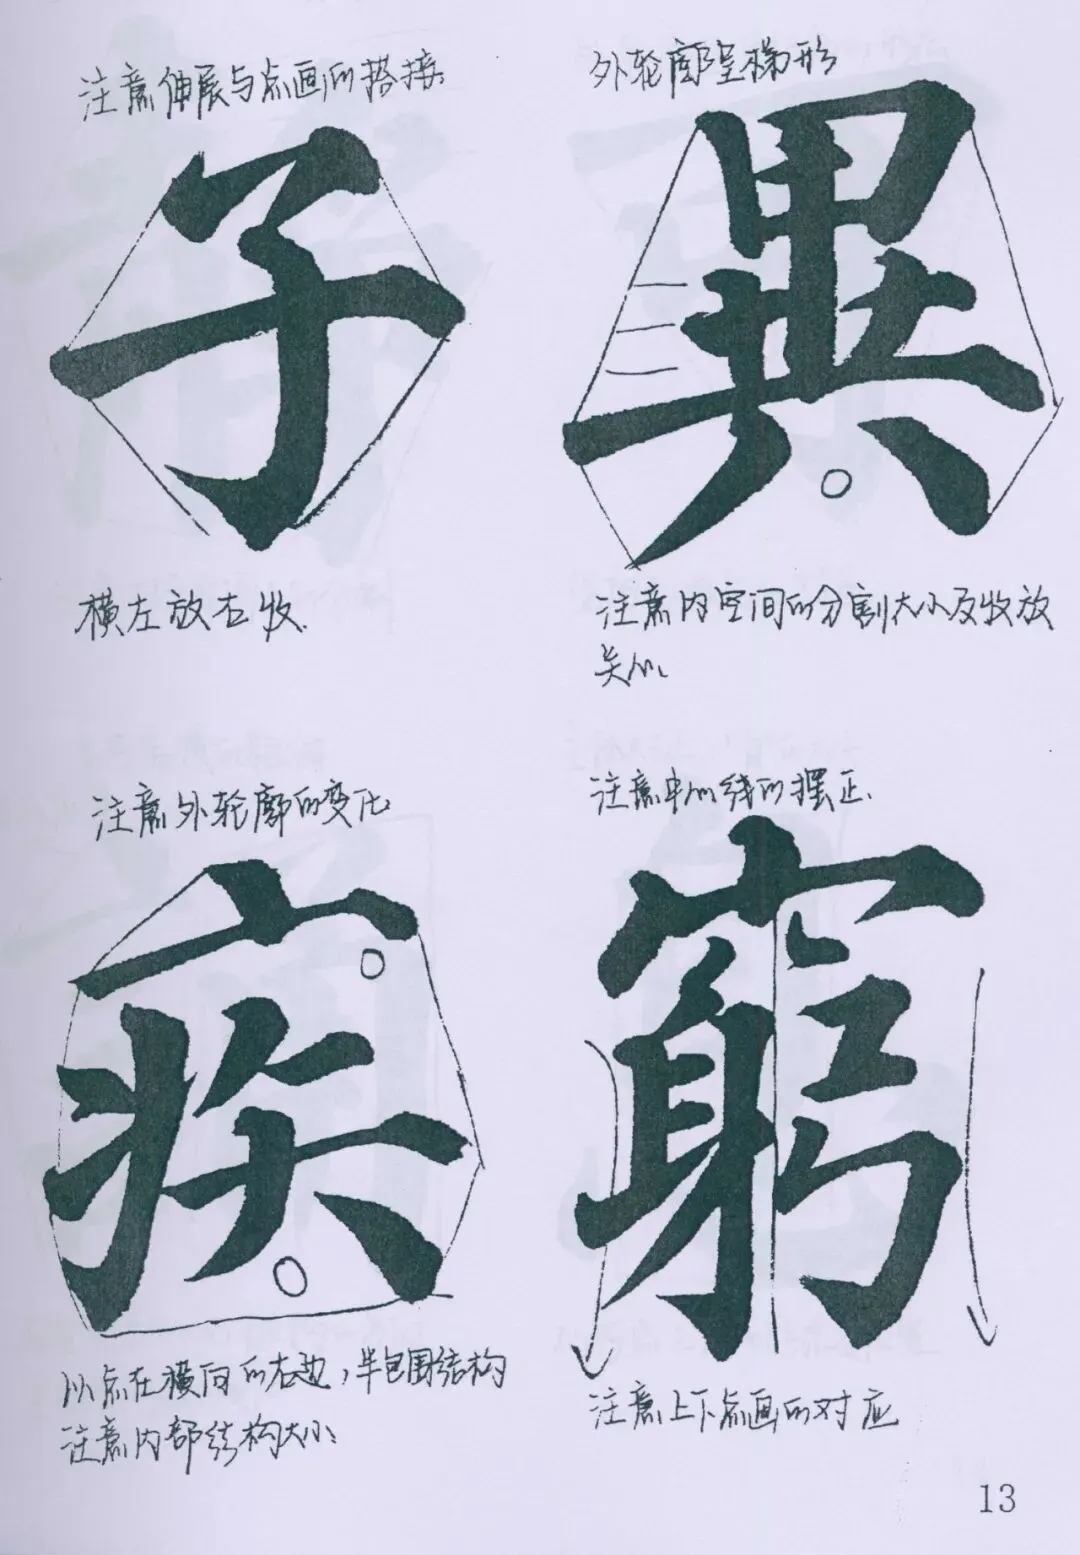 注意伸展与点画的搭接
子
横左放右收.
外轮廓呈梯形
異
注意内空间的分割大小及收放
关心
注意外轮廓的变化
疾
以点在横向的右边，半包围结构
注意内部结构大小
注意中心线的摆正.
窮
注意上下点画的对应
13